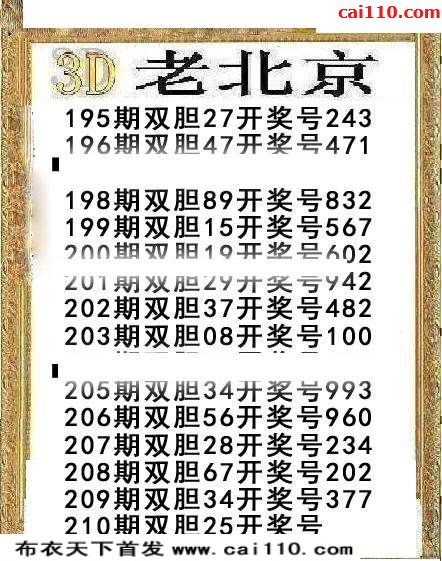 cai110.com
3D 老北京
195期双胆27开奖号243
196期双胆47开奖号471
198期双胆89开奖号832
199期双胆15开奖号567
200期双胆19开奖号602
201期双胆29开奖号942
202期双胆37开奖号482
203期双胆08开奖号100
205期双胆34开奖号993
206期双胆56开奖号960
207期双胆28开奖号234
208期双胆67开奖号202
209期双胆34开奖号377
210期双胆25开奖号
布衣天下首发 www.cai110.com